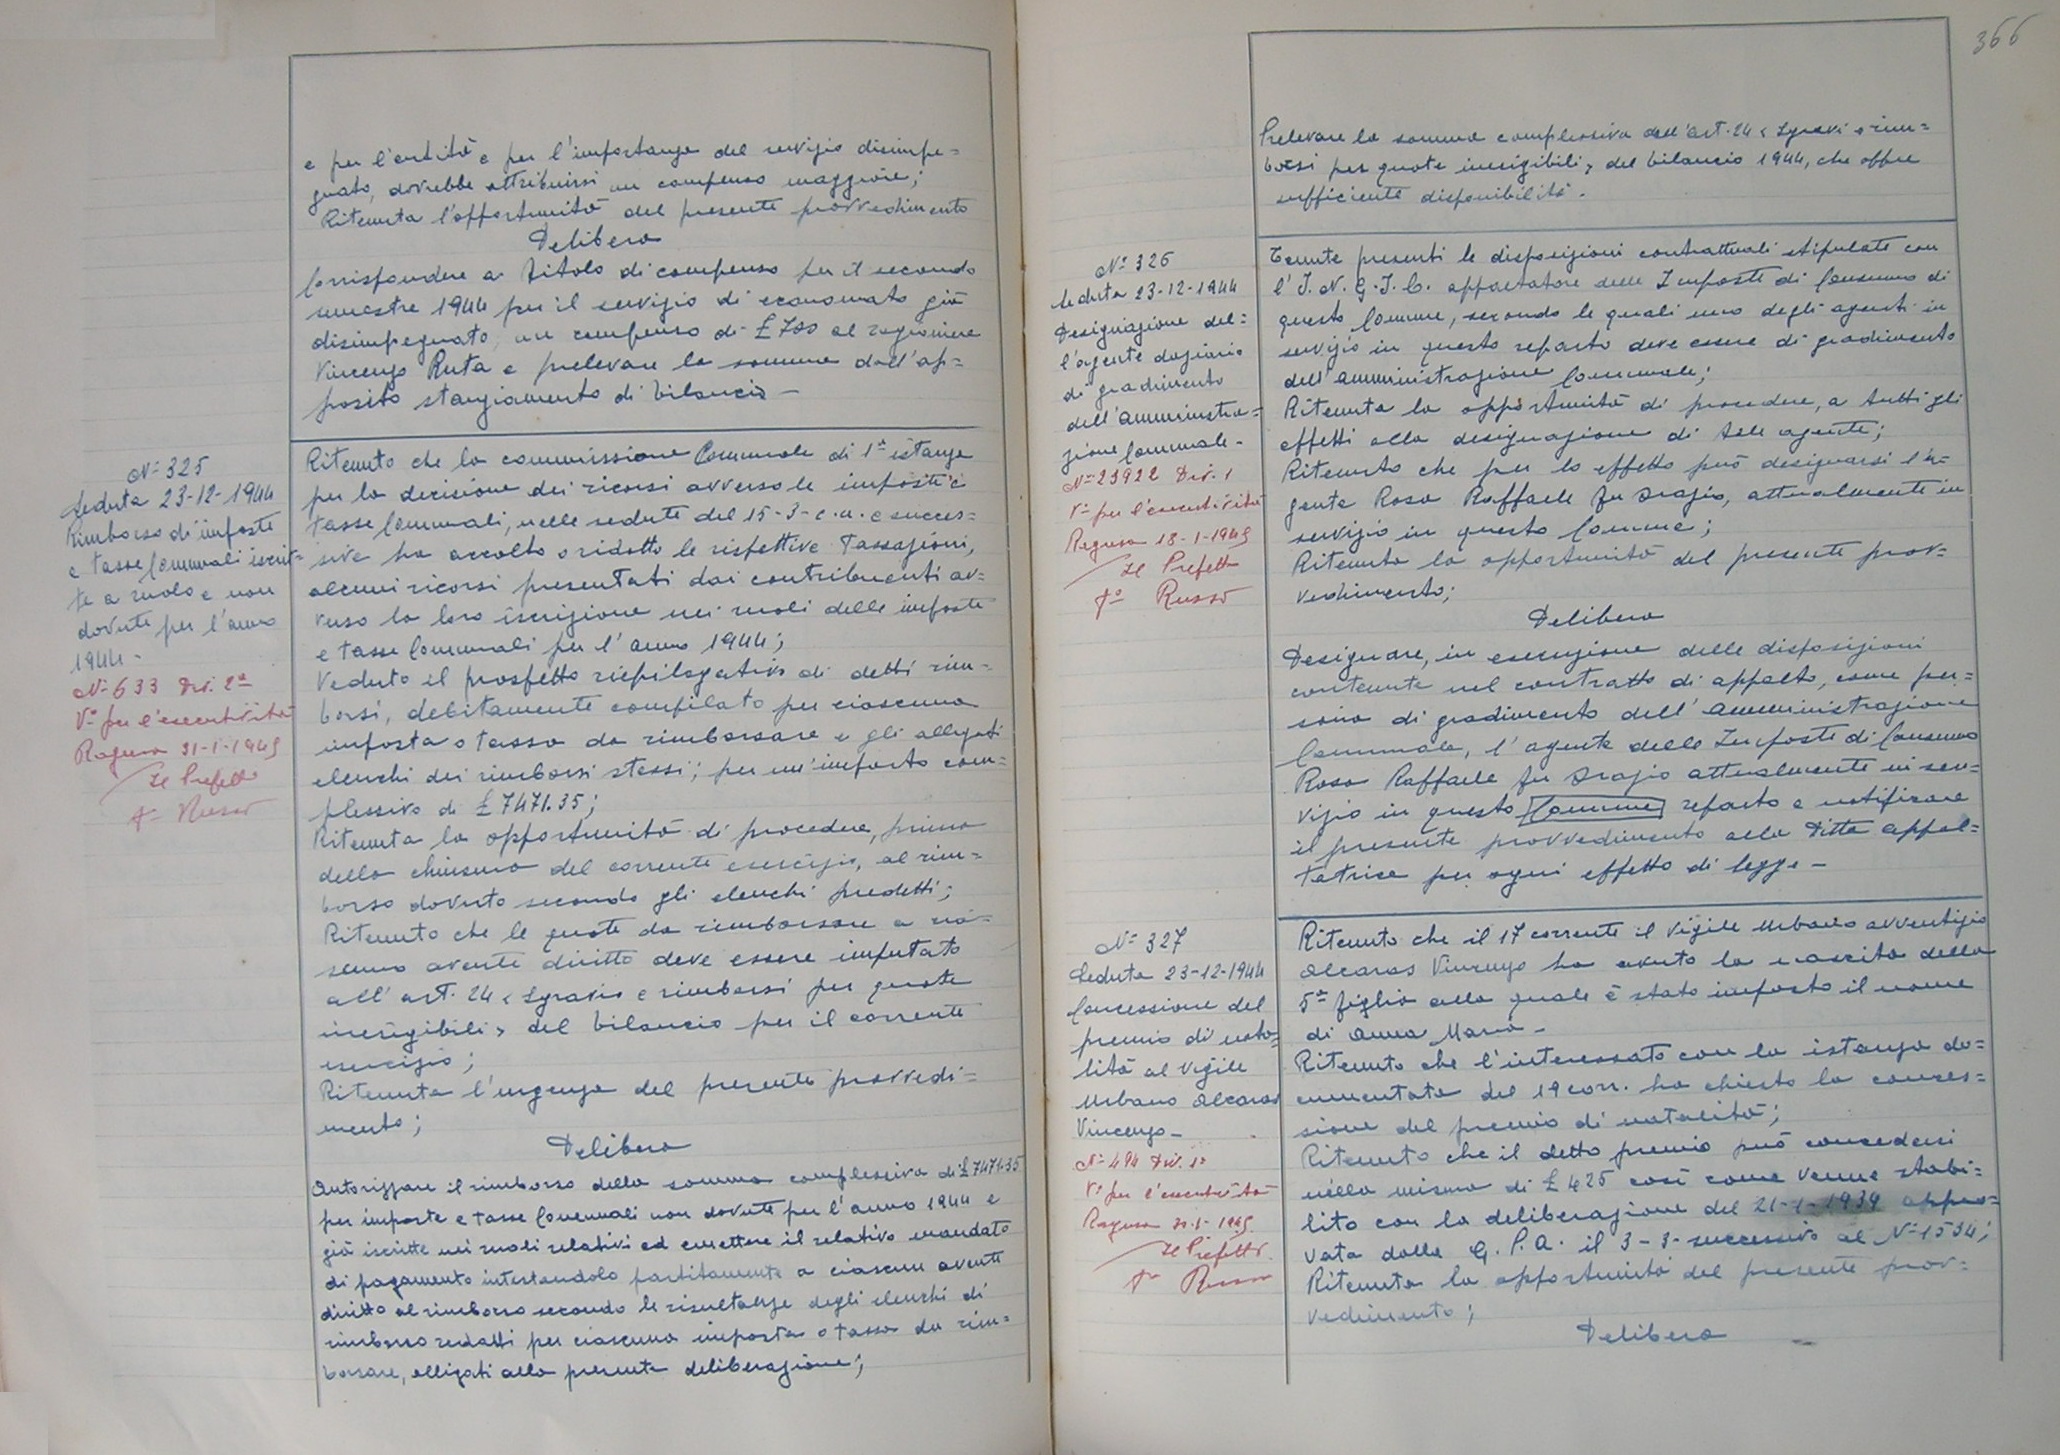 e per l'entità e per l'importanza del servizio disimpe=
gnato, dovrebbe attribuirsi un compenso maggiore;
Ritenuta l'opportunità del presente provvedimento
Delibera
Corrispondere a titolo di compenso per il secondo
semestre 1944 per il servizio di economato già
disimpegnato, un compenso di £ 700 al ragioniere
Vincenzo Ruta e prelevare la somma dall'ap=
posito stanziamento di bilancio -
N° 325
Seduta 23-12-1944
Rimborso di imposte
e tasse Comunali iscrit-
te a ruolo e non
dovute per l'anno
1944 -
N° 633 Div. 2ª
V° per l'esecutività
Ragusa 31-1-1945
Il Prefetto
f° Russo
Ritenuto che la commissione Comunale di 1ª istanza
per la decisione dei ricorsi avverso le imposte e
tasse Comunali, nelle sedute del 15-3-c.a. e succes=
sive ha accolto o ridotto le rispettive tassazioni,
alcuni ricorsi presentati dai contribuenti av=
verso la loro iscrizione nei ruoli delle imposte
e tasse Comunali per l'anno 1944;
Veduto il prospetto riepilogativo di detti rim=
borsi, debitamente compilato per ciascuna
imposta o tassa da rimborsare e gli allegati
elenchi dei rimborsi stessi; per un'importo com=
plessivo di £ 7471.35;
Ritenuta la opportunità di procedere, prima
della chiusura del corrente esercizio, al rim=
borso dovuto secondo gli elenchi predetti;
Ritenuto che le quote da rimborsare a cia=
scuno avente diritto deve essere imputato
all'art. 24 < Sgravi e rimborsi per quote
inesigibili > del bilancio per il corrente
esercizio;
Ritenuta l'urgenza del presente provvedi=
mento;
Delibera
Autorizzare il rimborso della somma complessiva di £ 7471.35
per imposte e tasse Comunali non dovute per l'anno 1944 e
già iscritte nei ruoli relativi ed emettere il relativo mandato
di pagamento intestandolo partitamente a ciascun avente
diritto al rimborso secondo le risultanze degli elenchi di
rimborso redatti per ciascuna imposta o tassa da rim=
borsare, alligati alla presente deliberazione;
366
Prelevare la somma complessiva dall'art. 24 < Sgravi e rim=
borsi per quote inesigibili > del bilancio 1944, che offre
sufficiente disponibilità.
N° 326
Seduta 23-12-1944
Designazione del=
l'agente daziario
di gradimento
dell'amministra=
zione Comunale -
N° 23922 Div. 1
V° per l'esecutività
Ragusa 18-1-1945
Il Prefetto
f° Russo
Tenute presenti le disposizioni contrattuali stipulate con
l'I.N.G.I.C. appaltatore delle Imposte di Consumo di
questo Comune, secondo le quali uno degli agenti in
servizio in questo reparto deve essere di gradimento
dell'amministrazione Comunale;
Ritenuta la opportunità di procedere, a tutti gli
effetti alla designazione di tale agente;
Ritenuto che per lo effetto può designarsi l'a=
gente Rosa Raffaele fu Biagio, attualmente in
servizio in questo Comune;
Ritenuta la opportunità del presente prov=
vedimento;
Delibera
Designare, in esecuzione delle disposizioni
contenute nel contratto di appalto, come per=
sona di gradimento dell'amministrazione
Comunale, l'agente delle Imposte di Consumo
Rosa Raffaele fu Biagio attualmente in ser=
vizio in questo Comune reparto e notificare
il presente provvedimento alla Ditta appal=
tatrice per ogni effetto di legge -
N° 327
Seduta 23-12-1944
Concessione del
premio di nata=
lità al vigile
Urbano Alcaras
Vincenzo -
N° 494 Div. 1ª
V° per l'esecutività
Ragusa 31-1-1945
Il Prefetto
f° Russo
Ritenuto che il 17 corrente il vigile urbano avventizio
Alcaras Vincenzo ha avuto la nascita della
5ª figlia alla quale è stato imposto il nome
di Anna Maria -
Ritenuto che l'interessato con la istanza do=
cumentata del 19 corr. ha chiesto la conces=
sione del premio di natalità;
Ritenuto che il detto premio può concedersi
nella misura di £ 425 così come venne stabi=
lito con la deliberazione del 21-1-1934 appro=
vata dalla G.P.A. il 3-3-successivo al N° 1534;
Ritenuta la opportunità del presente prov=
vedimento;
Delibera